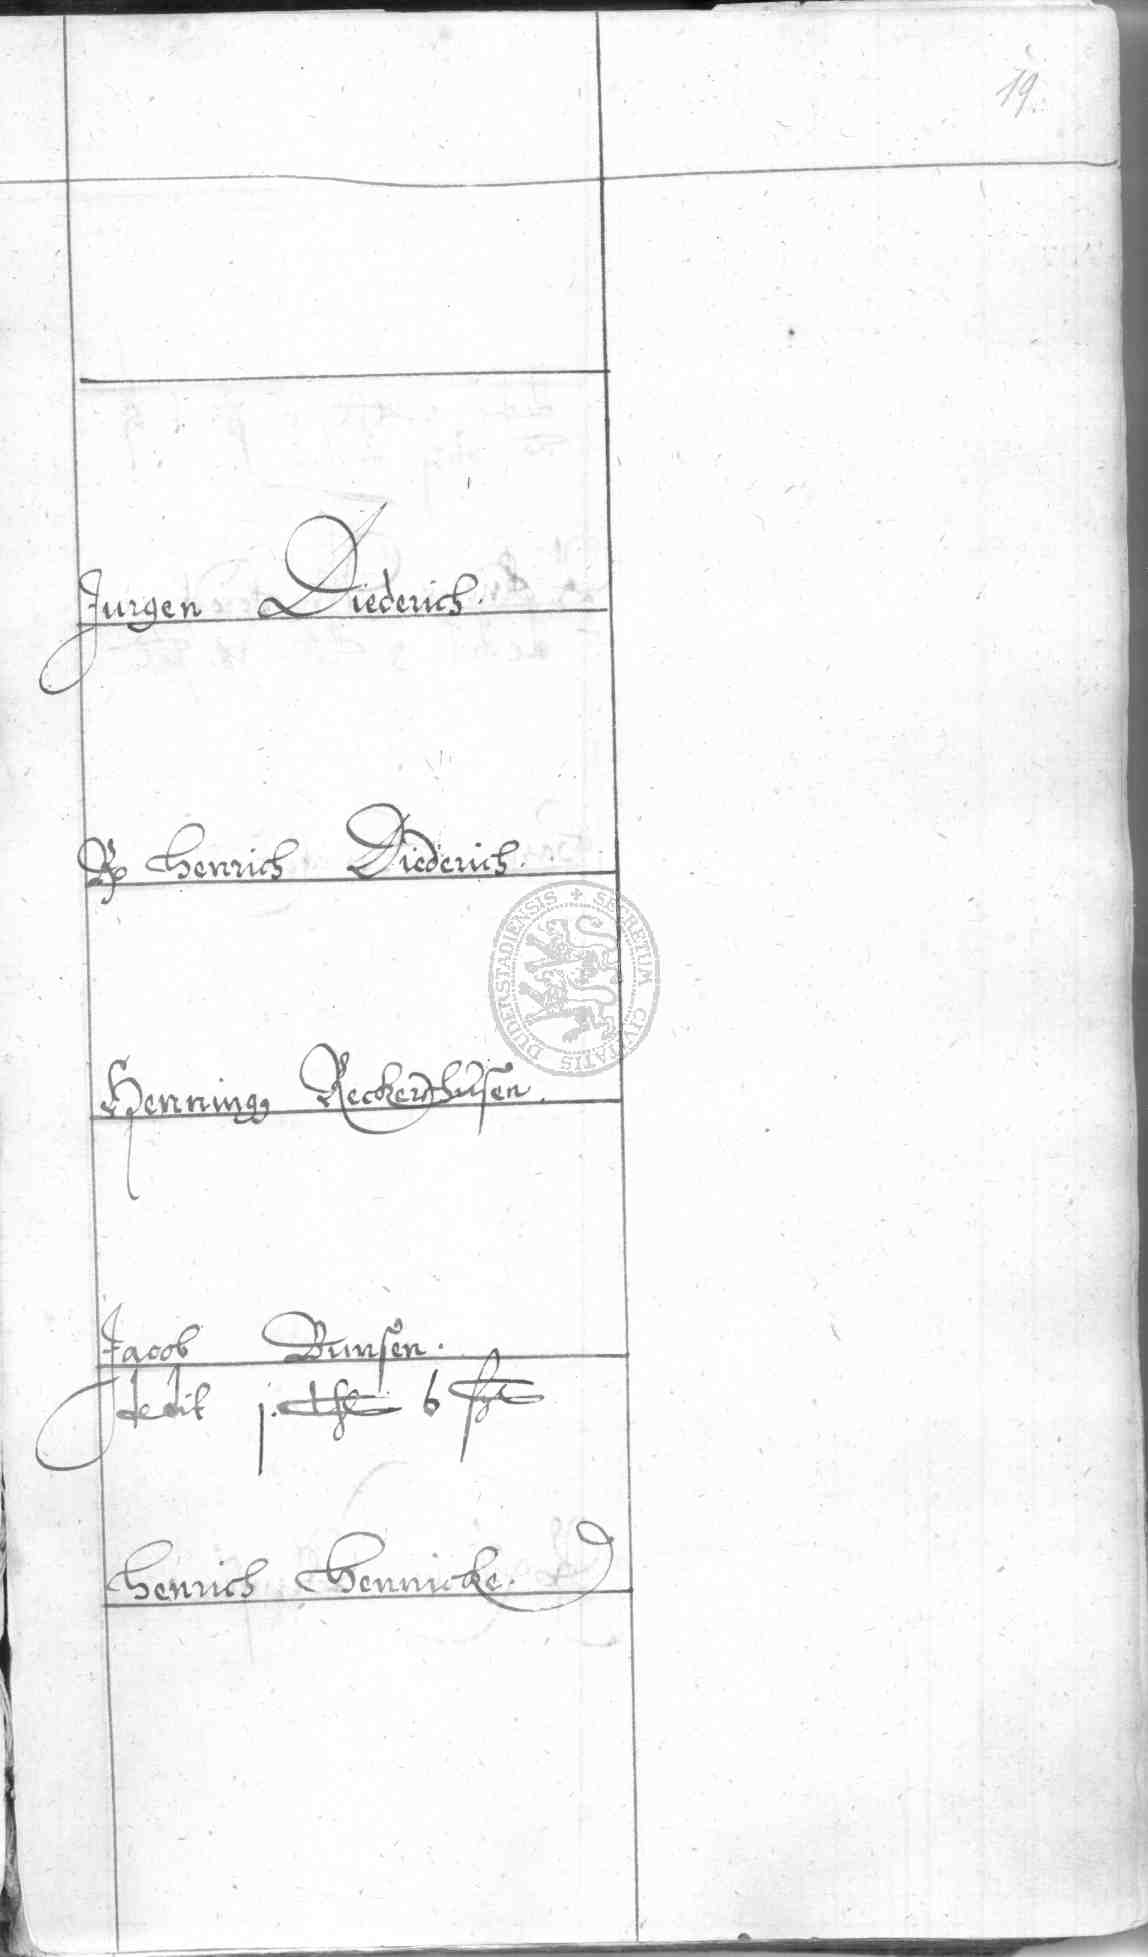 19
Jurgen Diederich.
Henrich Diederich.
SECRETUM CIVITATIS DUDERSTADIENSIS
Henning Reckershusen.
Jacob Bunsen.
dedit j. 6
Henrich Hennicke.